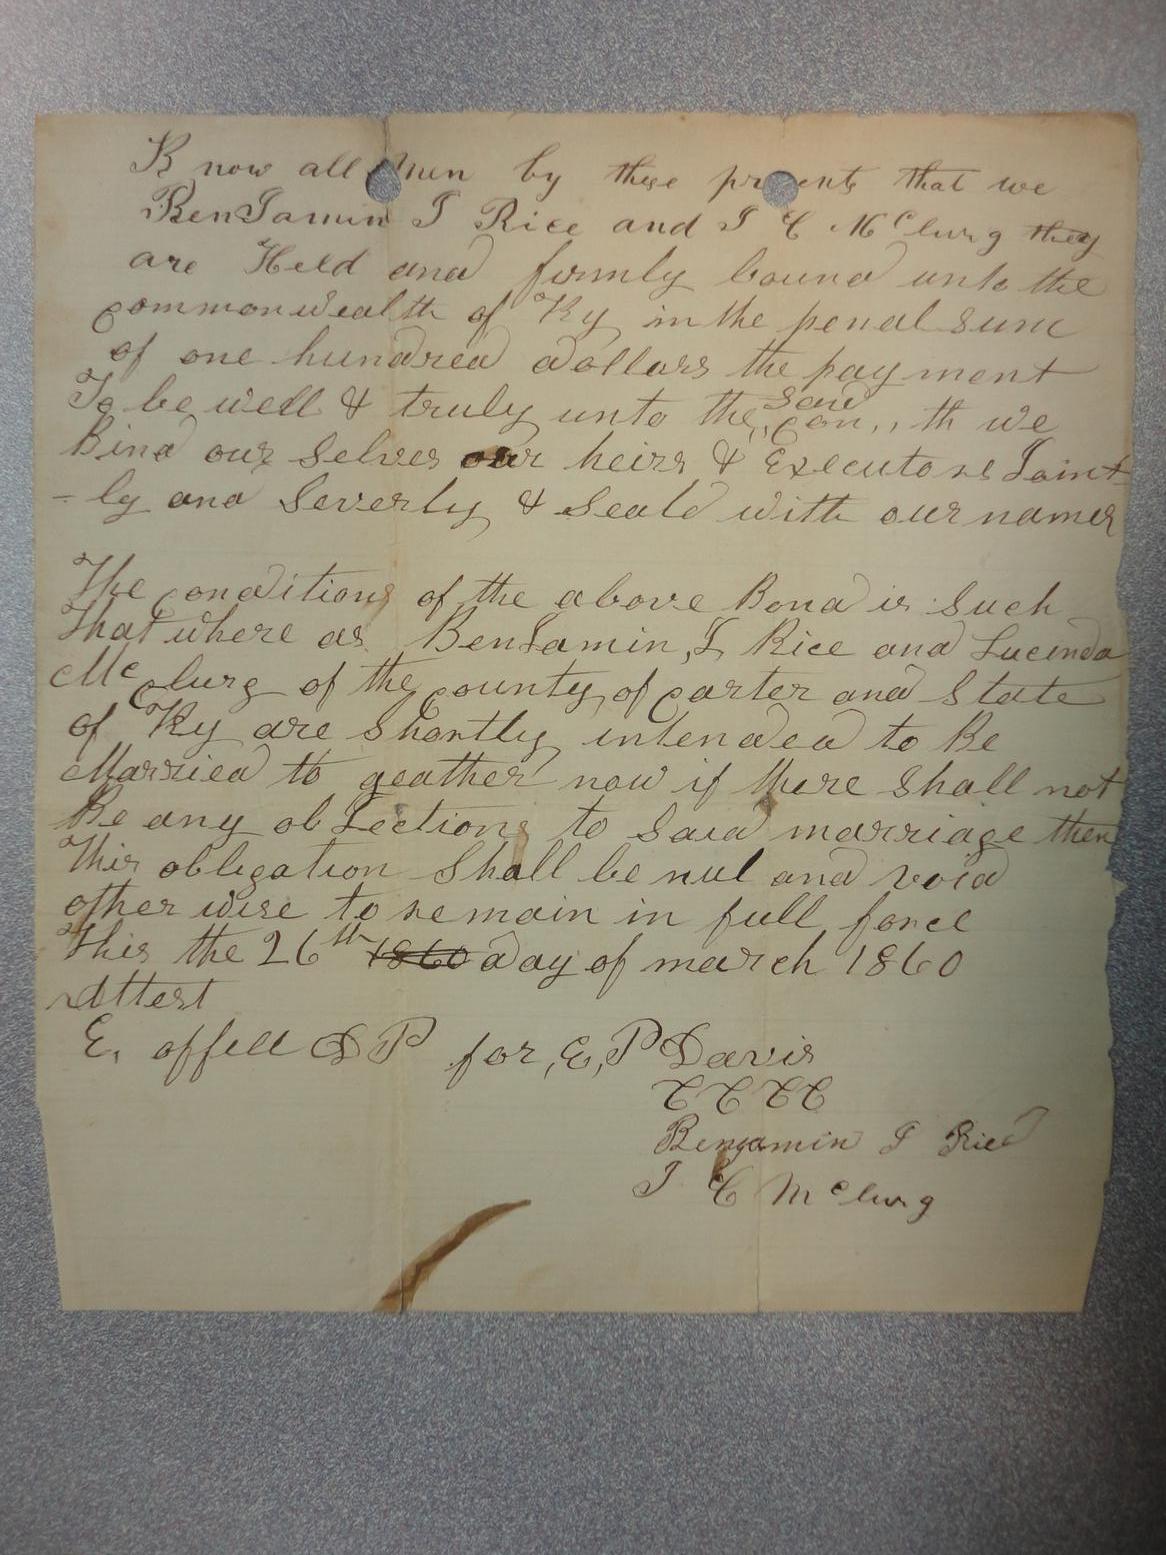 Know all men by these presents that we
BenJamin J Rice and J C McClurg they
are Held and firmly bound unto the
commonwealth of Ky in the penal sum
of one hundred dollars the payment
To be well & truly unto the said Com,, th we
Bind our selves our heirs & Executors Joint
- ly and Severly & Seald with our names
The conditions of the above Bond is Such
That where as BenJamin, J, Rice and Lucinda
McClurg of the county of carter and State
of Ky are Shortly intended to Be
Married to geather now if there Shall not
Be any obJections to Said marriage then
This obligation Shall be nul and void
other wise to remain in full force
This the 26th 1860 day of march 1860
Attest
E. offill DP for, E, P Davis
C C C C
Benjamin J Rice
J C McClurg